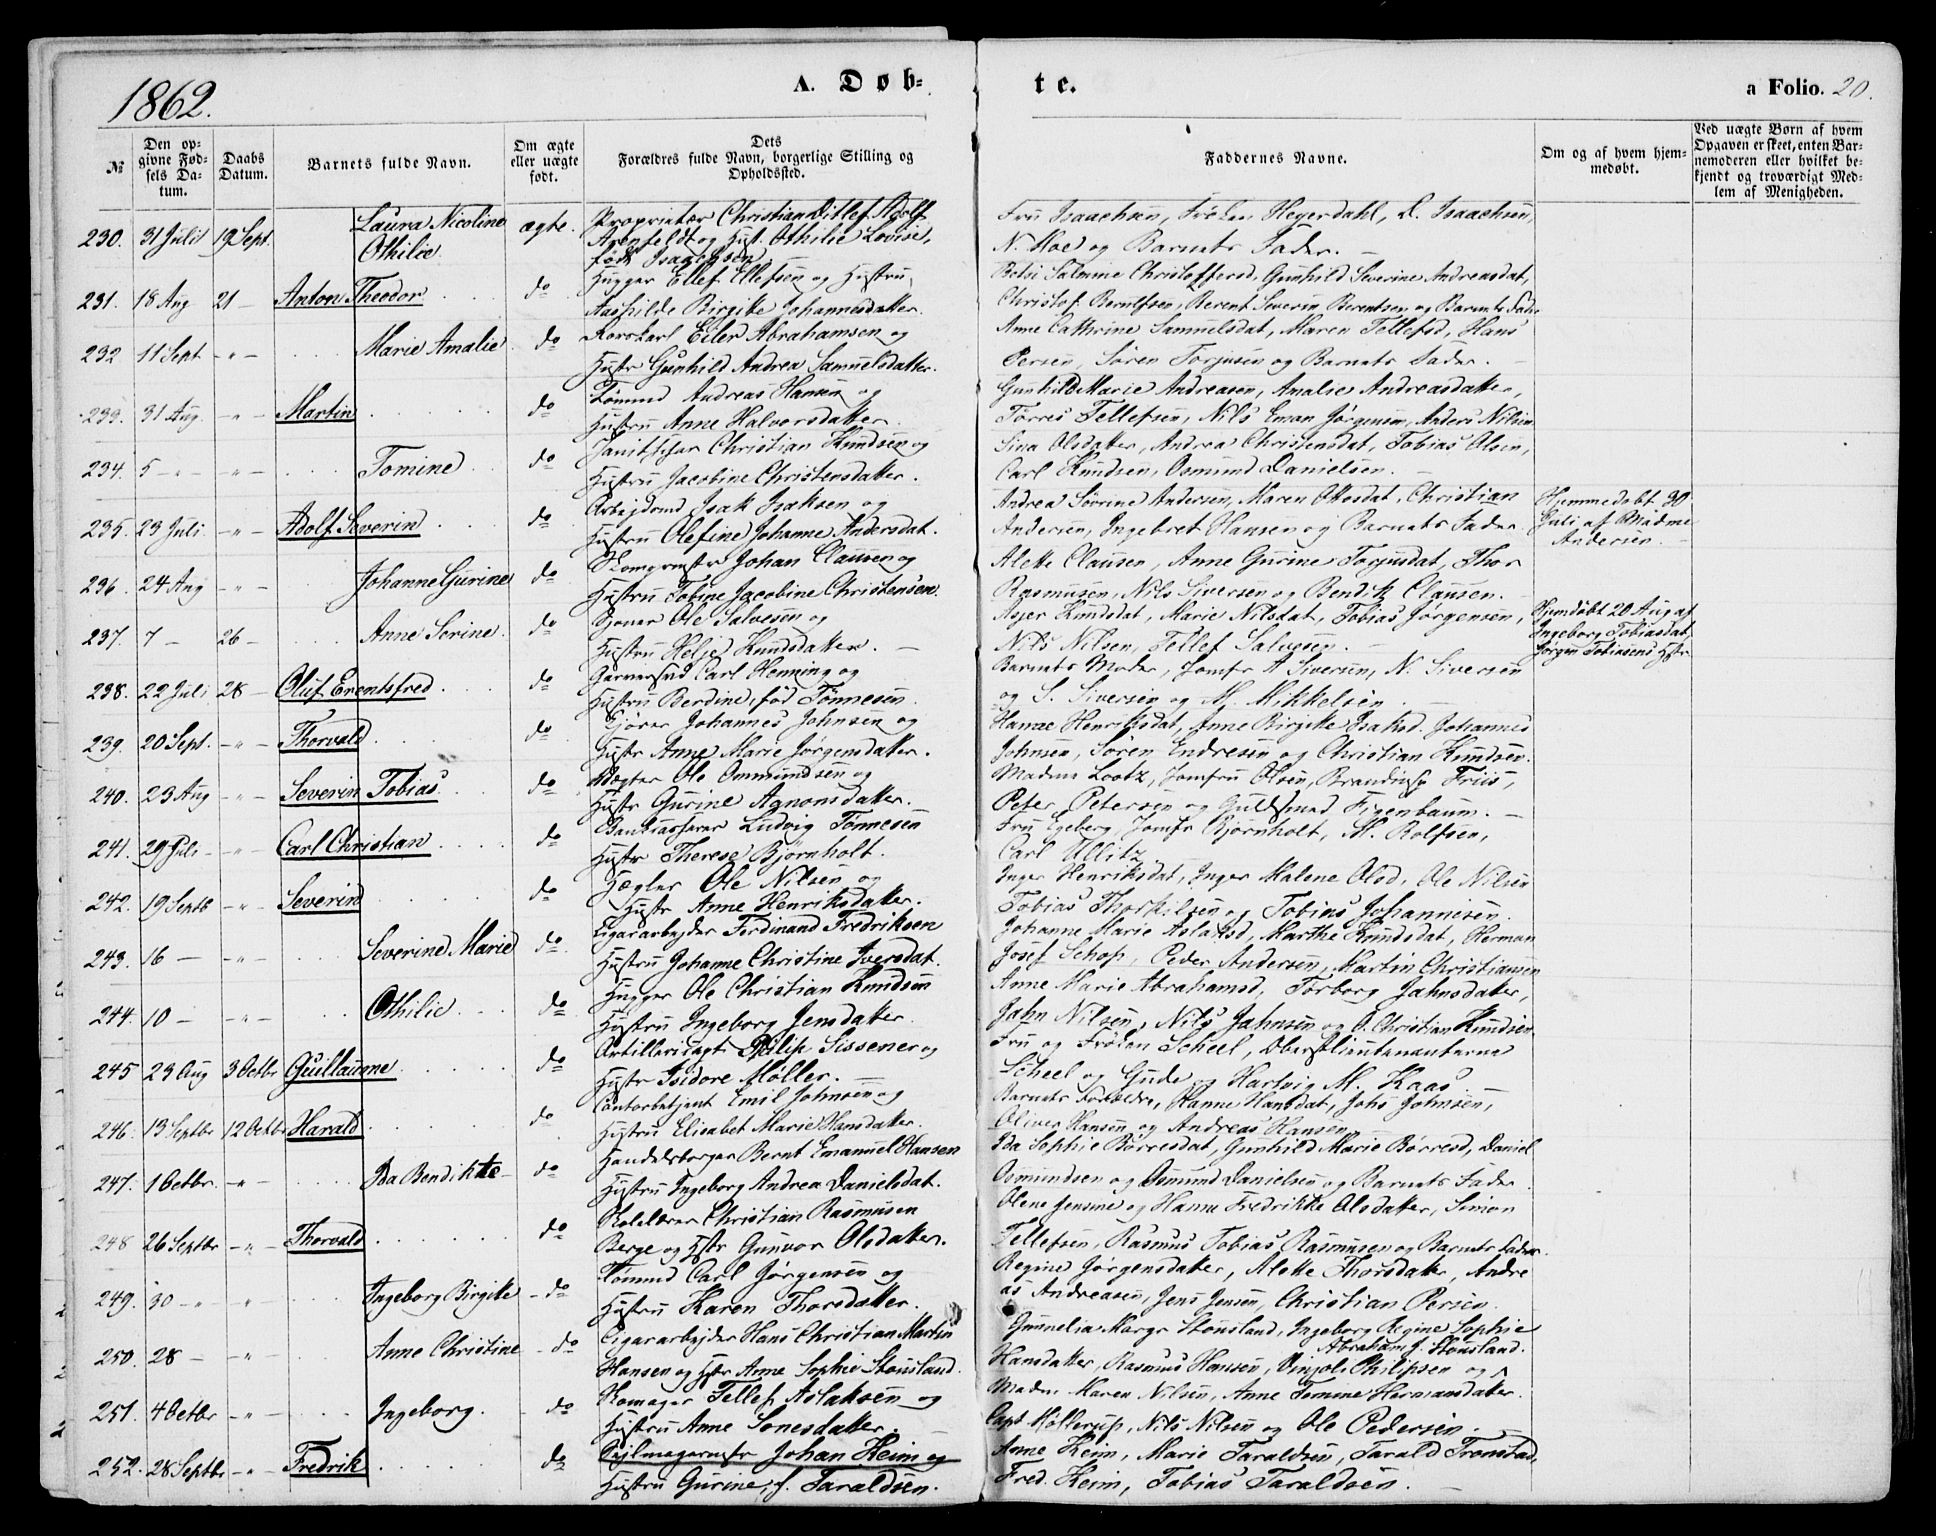 1862.
A. Døb-
te.
a Folio. 20.
№
Den op-
givne Fød-
sels Da-
tum.
Daabs
Datum.
Barnets fulde Navn.
Om ægte
eller uægte
født.
Dets
Forældres fulde Navn, borgerlige Stilling og
Opholdssted.
Faddernes Navne.
Om og af hvem hjem-
medøbt.
Ved uægte Børn af hvem
Opgaven er skeet, enten Bar-
nemoderen eller hvilket be-
kjendt og troværdigt Med-
lem af Menigheden.
230. 31 Juli 19 Sept. Laura Nicoline Othilie ægte. Proprietær Christian Ditlef Adolf
Arenfeldt og Hust. Othilie Lovise,
født Isaachsen.
Fru Isaachsen, Frøken Heyerdahl, D. Isaachsen,
N. Moe og Barnets Fader.
231. 18 Aug 21 - Anton Theodor do Hugger Ellef Ellefsen og Hustru
Aashilde Birgitte Johannesdatter.
Betsi Salmine Christoffersd, Gunhild Severine Andreasdat,
Christof. Berntsen, Berent Severin Berentsen og Barnets Fader
232 11 Sept - " - Marie Amalie do Rorskarl Eiler Abrahamsen og
Hustr Gunhild Andrea Samuelsdatter.
Anne Cathrine Samuelsdat, Maren Tellefsd, Hans
Persen, Søren Torjusen og Barnets Fader.
233. 31 Aug. - " - Martin do Tømmd Andreas Hansen og
Hustru Anne Halvorsdatter.
Gunhild Marie Andreasen, Amalie Andreasdatter,
Tørres Tellefsen, Nils Eman Jørgensen, Anders Nilsen
234. 5 - " - - " - Tomine do Janitschar Christian Knudsen og
Hustru Jacobine Christensdatter.
Sina Olsdatter, Andrea Christensdat, Tobias Olsen,
Carl Knudsen, Osmund Danielsen.
235. 23 Juli - " - Adolf Severin do Arbejdsmd Isak Isaksen og
Hustru Olefine Johanne Andersdat.
Andrea Sørine Andersen, Maren Ottosdat, Christian
Andersen, Ingebret Hansen og Barnets Fader
Hjemmedøbt 30
Juli af Madme
Andersen.
236. 24 Aug - " - Johanne Gurine do Skomgrmstr Johan Clausen og
Hustru Tobine Jacobine Christensen.
Alette Clausen, Anne Gurine Torjusdat, Thor
Rasmusen, Nils Siversen og Bendik Clausen.
237. 7 - 26 - Anne Serine. do Ole Salvesen og
Hustru Helje Knudsdatter.
Asjer Knudsdat, Marie Nilsdat, Tobias Jørgensen,
Nils Nilsen, Tellef Salvesen.
Hjemdøbt 20 Aug af
Ingeborg Tobiasdat,
Jørgen Tobiasens Hstr
238. 22 Juli 28 - Oluf Erentsfred do Garversvd Carl Henning og
Hustru Berdine, fød Tønnesen.
Barnets Moder, Jomfr A Siversen, N. Siversen
og S. Siversen og M. Mikkelsen.
239. 20 Sept. - " - Thorvald do Johannes Johnsen og
Hustr Anne Marie Jørgensdatter.
Hanne Henriksdat, Anne Birgitte Isaksd. Johannes
Johnsen, Søren Endresen og Christian Knudsen.
240. 23 Aug - " - Severin Tobias do Vægter Ole Ommundsen og
Hustr Gurine Agnonsdatter.
Madme Lootz, Jomfru Olsen, Friis,
Peter Petersen og Guldsmed Figenbaum.
241. 29 Juli - " - Carl Christian do Bankkasserer Ludvig Tønnesen
Hustr Therese Bjørnholt.
Fru Egeberg, Jomfr Bjørnholt, M. Rolfsen,
Carl Ullitz
242. 19 Septb - " - Severin do Hægter Ole Nilsen og
Hustr Anne Henriksdatter.
Inger Henriksdat, Inger Malene Olsd, Ole Nilsen
Tobias Thorkilsen og Tobias Johannesen.
243. 16 - - " - Severine Marie do Cigararbejder Ferdinand Fredriksen
Hustru Johanne Christine Iversdat.
Johanne Marie Aslaksd, Marthe Knudsdat, Herman
Josef Schop, Peder Andersen, Martin Christiansen
244. 10 - - " - Othilie do Hugger Ole Christian Knudsen
Hustru Ingeborg Jensdatter.
Anne Marie Abrahamsd, Torborg Jahnsdatter,
Jahn Nilsen, Nils Jahnsen og O. Christian Knudsen
245 23 Aug 3 Octbr Guillaume do Artillericapt Philip Sissener og
Hustr Isidore Møller.
Fru og Frøken Scheel, Oberstlieutenanterne
Scheel og Gude og Hartvig M. Kaas.
246. 13 Septbr 12 Octbr Harald do Contorbetjent Emil Johnsen og
Hustru Elisabet Marie Hansdatter.
Barnets Forældre, Hanne Hansdat, Johs Johnsen,
Oliver Hansen og Andreas Hansen.
247. 1 Octbr. - " - Ida Bendikte do Handelsborger Bernt Emanuel Hansen
Hustru Ingeborg Andrea Danielsdat.
Ida Sophie Børresdat, Gunhild Marie Børresd, Daniel
Osmundsen og Osmund Danielsen og Barnets Fader.
248 26 Septbr - " - Thorvald do Skolelærer Christian Rasmusen
Berge og Hstr Gunvor Olsdatter.
Olene Jensine og Hanne Fredrikke Olsdatter, Simon
Tellefsen, Rasmus Tobias Rasmusen og Barnets Fader.
249. 30 - " - - " - Ingeborg Birgitte do Tømmd Carl Jørgensen og
Hustru Karen Thorsdatter.
Regine Jørgensdatter, Alette Thorsdatter, Andre
as Andreasen, Jens Jensen, Christian Persen.
250. 28 - - " - Anne Christine do Cigararbejder Hans Christian Martin
Hansen og Hstr Anne Sophie Stousland.
Gunnelia Margr Stousland, Ingeborg Regine Sophie
Abraham J. Stousland.
Hansdatter, Rasmus Hansen, Philipsen og
251. 4 Octbr - " - Ingeborg. do Skomager Tellef Aslaksen og
Hustru Anne Sonesdatter.
Madm Maren Nilsen, Anne Tomine Hermansdatter.
Capt Møllerup, Nils Nilsen og Ole Pedersen.
252. 28 Septbr - " - Fredrik do Sejlmagermstr Johan Heim og
Hustru Gurine, f. Taraldsen.
Anne Heim, Marie Taraldsen, Tarald Tromstad,
Fred. Heim, Tobias Taraldsen.